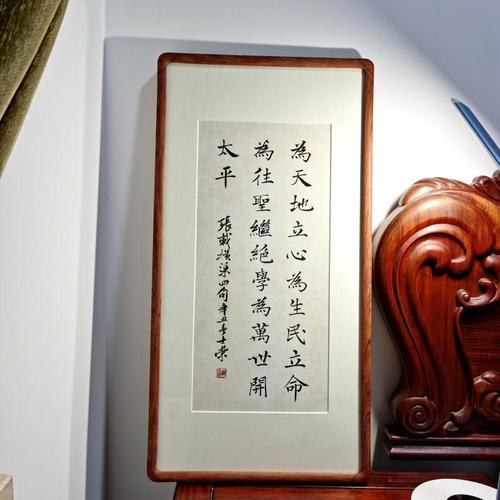 為天地立心為生民立命
為往聖繼絕學為萬世開
太平
張載橫渠四句辛丑